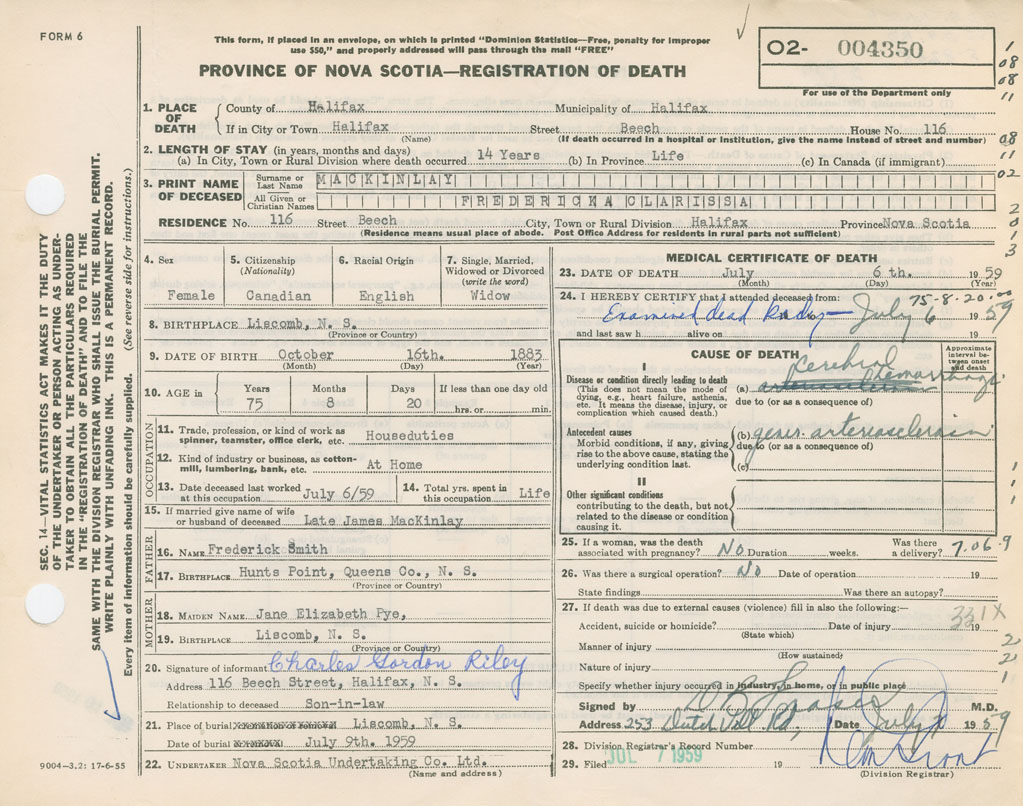 FORM 6
This form, if placed in an envelope, on which is printed "Dominion Statistics—Free, penalty for improper
use $50," and properly addressed will pass through the mail "FREE"
PROVINCE OF NOVA SCOTIA—REGISTRATION OF DEATH
O2- 004350
For use of the Department only
1
08
08
11
08
11
02
2
0
1
3
SEC. 14—VITAL STATISTICS ACT MAKES IT THE DUTY
OF THE UNDERTAKER OR PERSON ACTING AS UNDER-
TAKER TO OBTAIN ALL THE PARTICULARS REQUIRED
IN THE "REGISTRATION OF DEATH" AND TO FILE THE
SAME WITH THE DIVISION REGISTRAR WHO SHALL ISSUE THE BURIAL PERMIT.
WRITE PLAINLY WITH UNFADING INK. THIS IS A PERMANENT RECORD.
Every item of information should be carefully supplied. (See reverse side for instructions.)
1. PLACE OF DEATH
County of Halifax Municipality of Halifax
If in City or Town Halifax Street Beech House No. 116
(Name) (If death occurred in a hospital or institution, give the name instead of street and number)
2. LENGTH OF STAY (in years, months and days)
(a) In City, Town or Rural Division where death occurred 14 Years (b) In Province Life (c) In Canada (if immigrant)
3. PRINT NAME OF DECEASED
Surname or Last Name MACKINLAY
All Given or Christian Names FREDERICKA CLARISSA
RESIDENCE No. 116 Street Beech City, Town or Rural Division Halifax Province Nova Scotia
(Residence means usual place of abode. Post Office Address for residents in rural parts not sufficient)
4. Sex
Female
5. Citizenship
(Nationality)
Canadian
6. Racial Origin
English
7. Single, Married,
Widowed or Divorced
(write the word)
Widow
8. BIRTHPLACE Liscomb, N. S.
(Province or Country)
9. DATE OF BIRTH October 16th. 1883
(Month) (Day) (Year)
10. AGE in
Years Months Days If less than one day old
75 8 20 hrs. or min.
OCCUPATION
11. Trade, profession, or kind of work as
spinner, teamster, office clerk, etc. Houseduties
12. Kind of industry or business, as cotton-
mill, lumbering, bank, etc. At Home
13. Date deceased last worked
at this occupation July 6/59
14. Total yrs. spent in
this occupation Life
15. If married give name of wife
or husband of deceased Late James MacKinlay
FATHER
16. NAME Frederick Smith
17. BIRTHPLACE Hunts Point, Queens Co., N. S.
(Province or Country)
MOTHER
18. MAIDEN NAME Jane Elizabeth Pye,
19. BIRTHPLACE Liscomb, N. S.
(Province or Country)
20. Signature of informant Charles Gordon Riley
Address 116 Beech Street, Halifax, N. S.
Relationship to deceased Son-in-law
21. Place of burial Liscomb, N. S.
Date of burial July 9th. 1959
22. UNDERTAKER Nova Scotia Undertaking Co. Ltd.
(Name and address)
9004—3.2: 17-6-55
MEDICAL CERTIFICATE OF DEATH
23. DATE OF DEATH July 6th. 1959
(Month) (Day)
75-8-20
24. I HEREBY CERTIFY that I attended deceased from:
Examined dead Body — July 6 1959
and last saw h alive on 19
CAUSE OF DEATH
Approximate
interval be-
tween onset
and death
I
Disease or condition directly leading to death
(This does not mean the mode of
dying, e.g., heart failure, asthenia,
etc. It means the disease, injury, or
complication which caused death.)
(a) Cerebral Hemorrhage
due to (or as a consequence of)
Antecedent causes
Morbid conditions, if any, giving
rise to the above cause, stating the
underlying condition last.
(b) gener arteriosclerosis
due to (or as a consequence of)
(c)
II
Other significant conditions
contributing to the death, but not
related to the disease or condition
causing it.
25. If a woman, was the death
associated with pregnancy? No Duration weeks.
Was there
a delivery? 7.06.9
26. Was there a surgical operation? No Date of operation 19
State findings Was there an autopsy?
27. If death was due to external causes (violence) fill in also the following:—
331X
Accident, suicide or homicide? Date of injury 19
(State which)
Manner of injury
(How sustained)
Nature of injury
Specify whether injury occurred in industry, in home, or in public place
Signed by M.D.
Address 253 Dutch Vill Rd, Date July 1959
28. Division Registrar's Record Number
29. Filed JUL 7 1959 19
(Division Registrar)
1
1
1
2
2
1